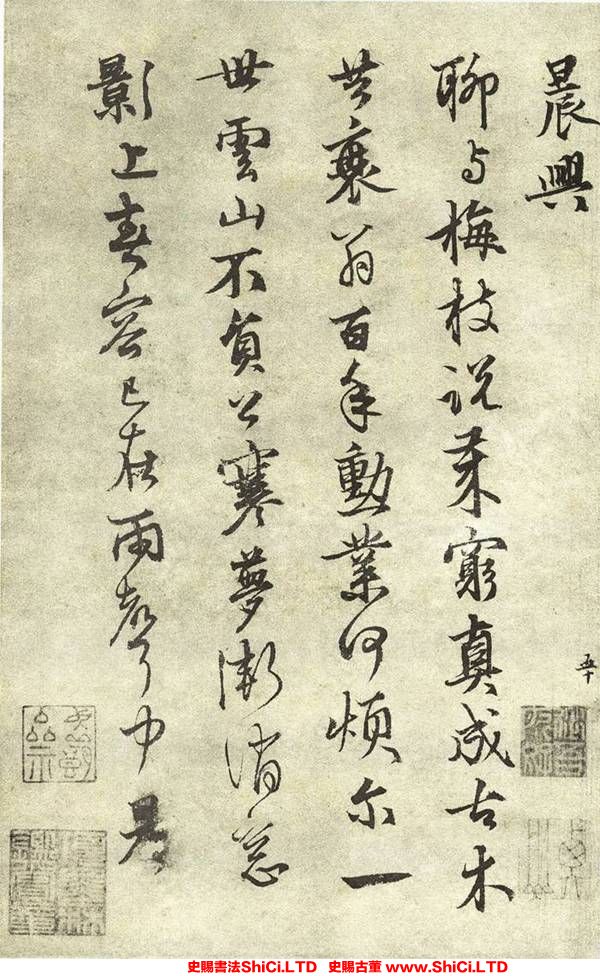 晨興
聊与梅枝说窮真成古木
共衰翁百年勳業何煩尔一
世雲山不負公寒夢漸消窓
影上春容已在雨聲中
五十
史賜書法ShiCi.LTD 史賜古董 www.ShiCi.LTD